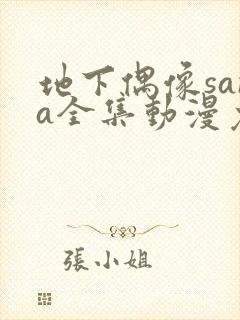 地下偶像sa
a全集動漫
張小姐